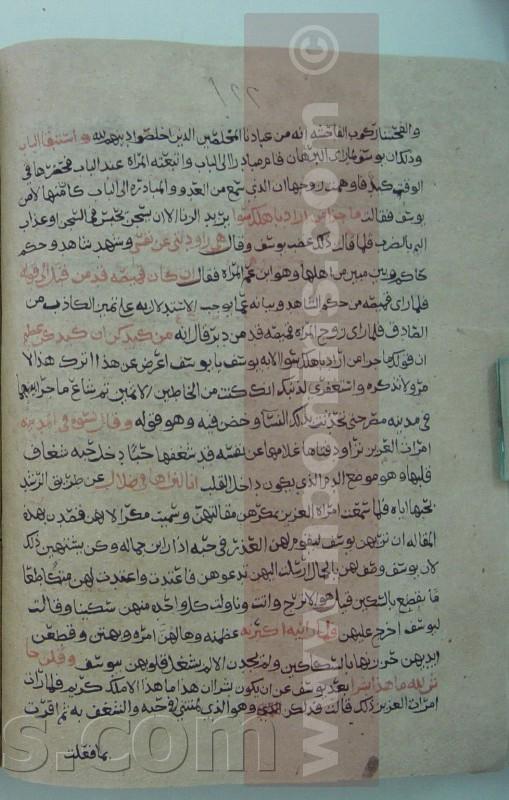 ١٢٢
والفحشا ركوب الفاحشة انه من عبادنا المخلصين الذين اخلصوا دينهم لله واستبقا الباب
وذلك ان يوسف لما راى البرهان قام مبادرا الى الباب واتبعته المراة عند الباب فحضرها في
الوقت
يوسف فقالت ما جزا من اراد باهلك سوا يريد الزنا الا ان سجن يحبس في السجن او عذاب
اليم بالضرب فلما قالت ذلك غضب يوسف وقال هي راودتني عن نفسي وشهد شاهد وحكم
حاكم وبين مبين من اهلها وهو ابن عم المراة فقال ان كان قميصه قد من قبل الى قوله
فلما راى قميصه من حكم الشاهد وبيانه عما يوجب الاستدلال به على تمييز الكاذب من
الصادق فلما راى زوج المراة قميصه قد من دبر قال انه من كيدكن ان كيدكن عظيم
ان قولك ما جزا من اراد باهلك سوا الاية يوسف يا يوسف اعرض عن هذا اترك هذا الامر
ولا تذكره واستغفري لذنبك انك كنت من الخاطين الاثمين ثم شاع ما جرا بينهما
في مدينة مصر حتى تحدثت بذلك النسا وخضن فيه وهو قوله وقال نسوة في المدينة
امرات العزيز تراود فتاها غلامها عن نفسه قد شغفها حبا دخل حبه شغاف
قلبها وهو موضع الدم الذي يكون داخل القلب انا لنراها في ضلال عن طريق الرشد
لحبها اياه فلما سمعت امراة العزيز بمكرهن مقالتهن وسميت مكرا لانهن قصدن بهذه
المقالة ان تريهن يوسف ليقوم لهن العذر في حبه اذا راين جماله وكن يشتهين ذلك
لان يوسف وصف لهن بالجمال ارسلت اليهن تدعوهن فاعتدت واعتدت لهن متكا طعاما
ما يقطع بالسكين قيل هو الاترج واتت وناولت كل واحدة منهن سكينا وقالت
ليوسف اخرج عليهن فلما راينه اكبرنه عظمنه وهالهن امره وبهتن وقطعن
ايديهن حززنها بالسكاكين ولم يجدن الالم لشغل قلوبهن بيوسف وقلن حا
ش لله ما هذا بشرا بعد يوسف عن ان يكون بشرا ان هذا ما هذا الا ملك كريم فلما رات
امرات العزيز ذلك قالت فذلكن الذي وهو الذي لمتنني في حبه والشغف به ثم اقرت
بما فعلت